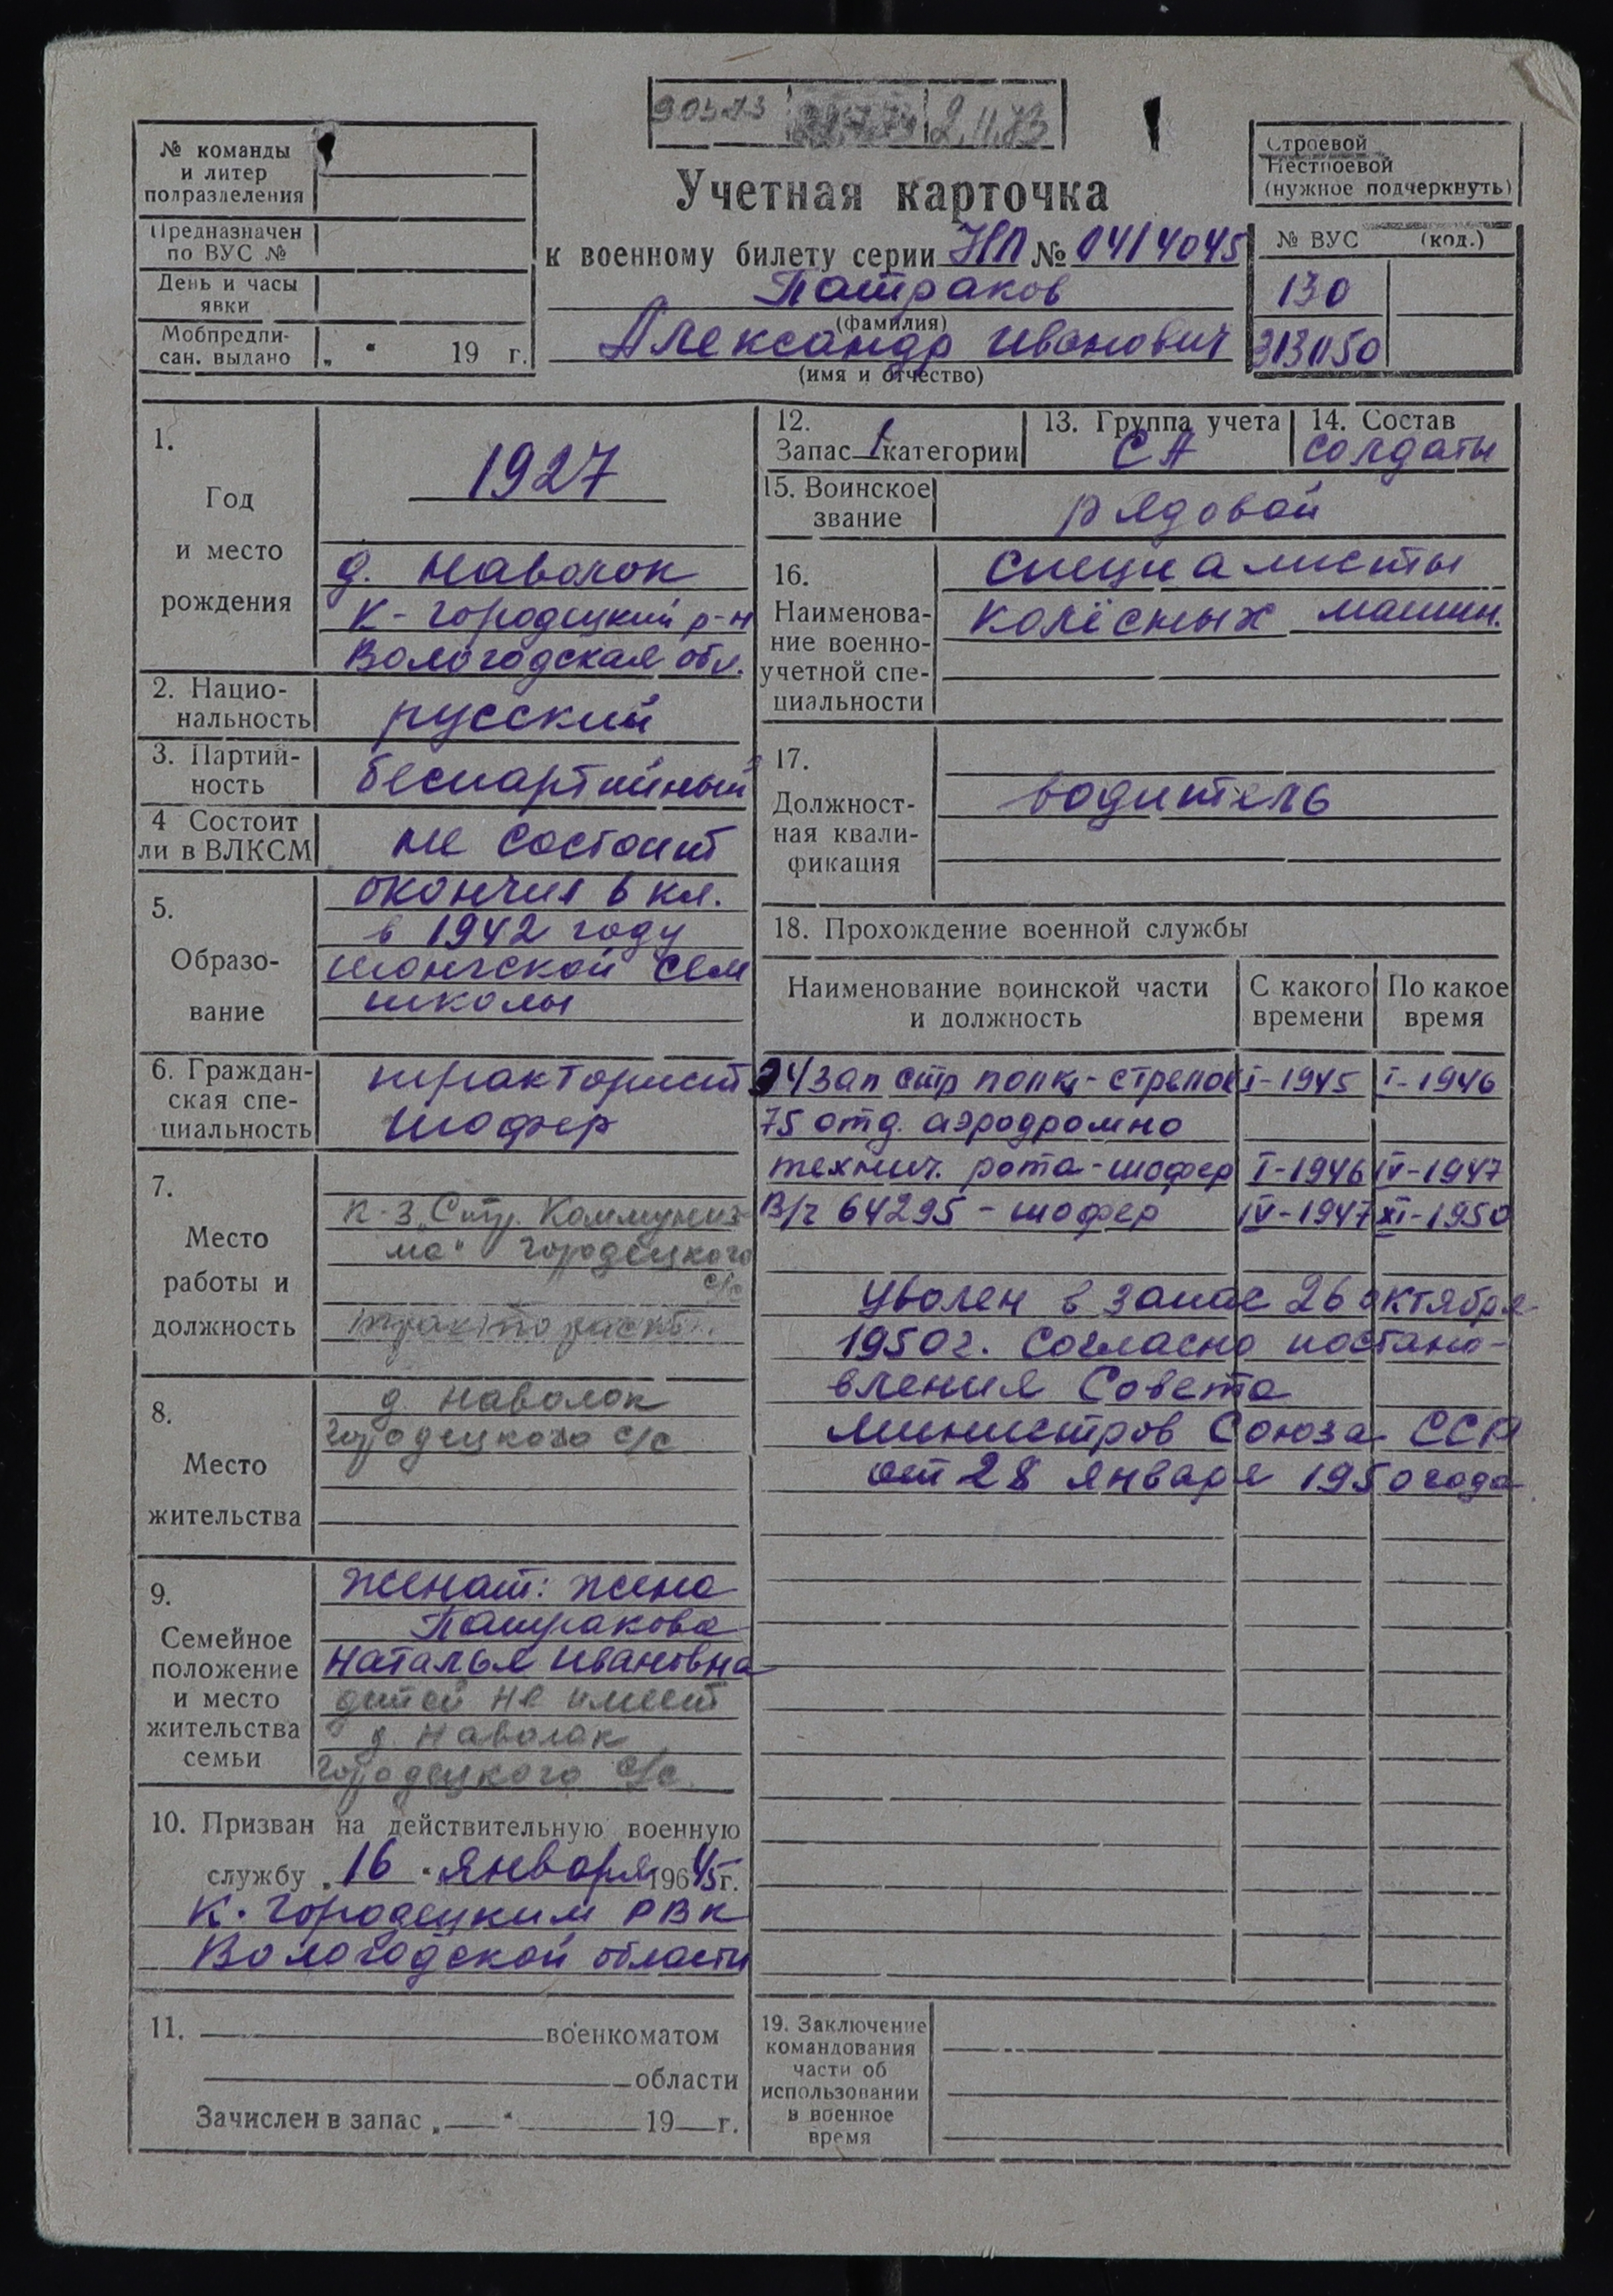 2.11.73
№ команды
и литер
подразделения
Предназначен
по ВУС №
День и часы
явки
Мобпредпи-
сан. выдано „ " 19 г.
Учетная карточка
к военному билету серии НП № 0414045
Патраков
(фамилия)
Александр Иванович
(имя и отчество)
Строевой
Нестроевой
(нужное подчеркнуть)
№ ВУС (код.)
130
3131150
1.
Год
и место
рождения
1927
д. Наволок
К-городецкий р-н
Вологодская обл.
2. Нацио-
нальность
русский
3. Партий-
ность
беспартийный
4 Состоит
ли в ВЛКСМ
не состоит
5.
Образо-
вание
окончил 6 кл.
в 1942 году
шонгской сем
школы
6. Граждан-
ская спе-
циальность
тракторист
шофер
7.
Место
работы и
должность
к-з „Стр. Коммуниз-
ма" Городецкого
с/с
тракторист.
8.
Место
жительства
д. Наволок
Городецкого с/с
9.
Семейное
положение
и место
жительства
семьи
женат: жена
Патракова
Наталья Ивановна
детей не имеет
д. Наволок
Городецкого с/с.
10. Призван на действительную военную
службу „16" января 19645г.
К. Городецким РВК
Вологодской области
11. военкоматом
области
Зачислен в запас „ " 19 г.
12.
Запас 1 категории
13. Группа учета
СА
14. Состав
солдаты
15. Воинское
звание
рядовой
16.
Наименова-
ние военно-
учетной спе-
циальности
специалисты
колёсных машин.
17.
Должност-
ная квали-
фикация
водитель
18. Прохождение военной службы
Наименование воинской части
и должность
С какого
времени
По какое
время
зап стр полк - стрелок I-1945 I-1946
75 отд. аэродромно
технич. рота - шофер I-1946 IV-1947
В/ч 64295 - шофер IV-1947 XI-1950
Уволен в запас 26 октября
1950г. согласно постано-
вления Совета
министров Союза ССР
от 28 января 1950 года
19. Заключение
командования
части об
использовании
в военное
время